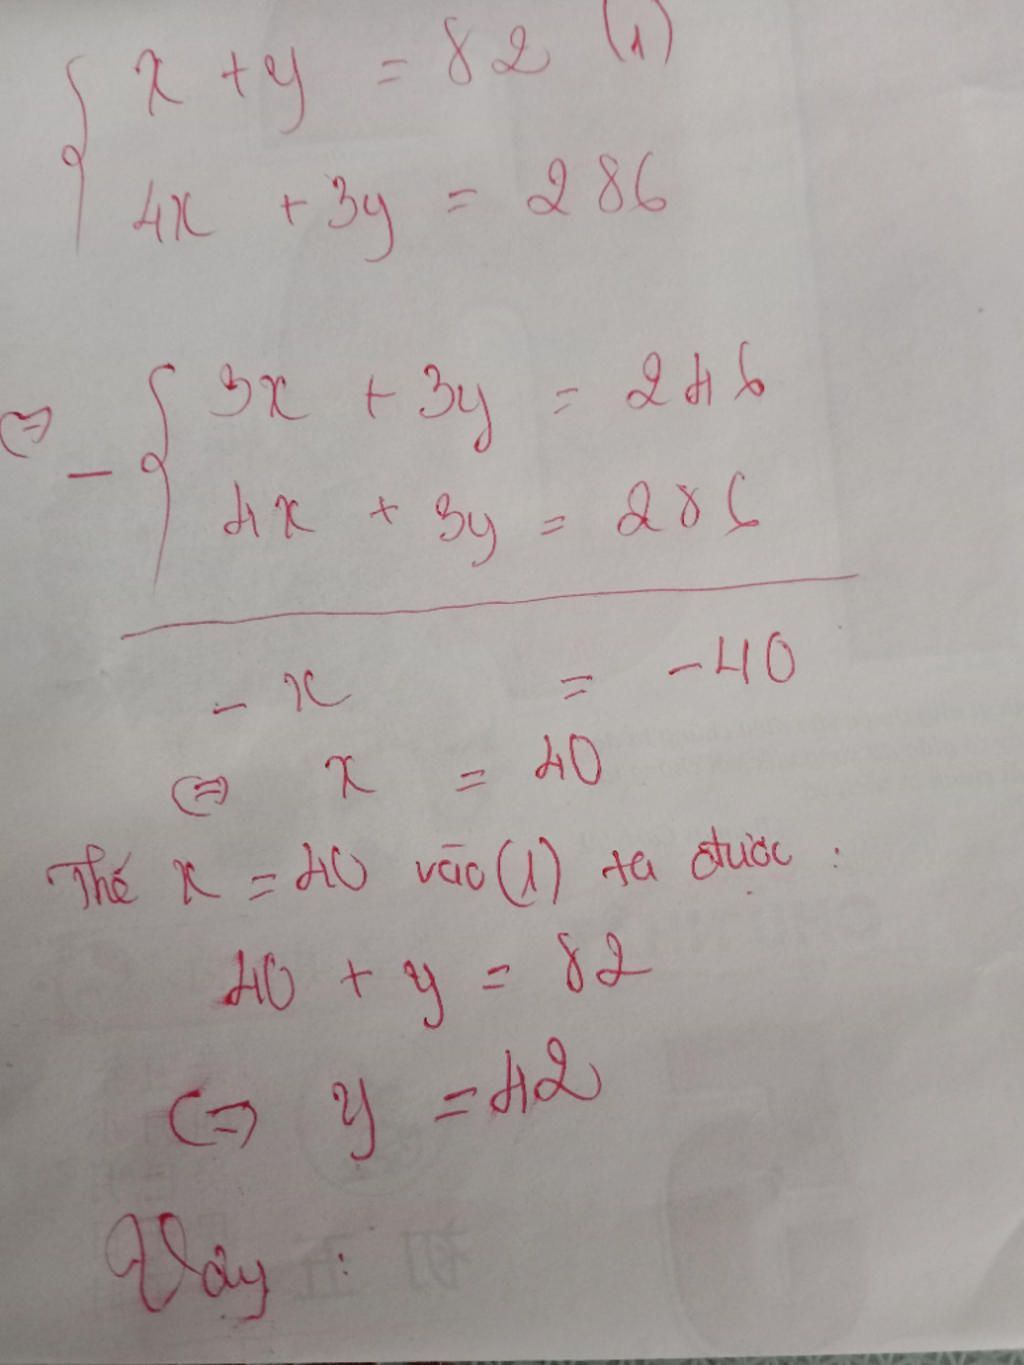 x + y = 82 (1)
4x + 3y = 286
(=) - 3x + 3y = 246
4x + 3y = 286
- x = -40
(=) x = 40
Thế x = 40 vào (1) ta được :
40 + y = 82
(=) y = 42
Vậy :
初 五